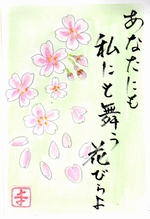 あなたにも
私にと舞う
花びらよ